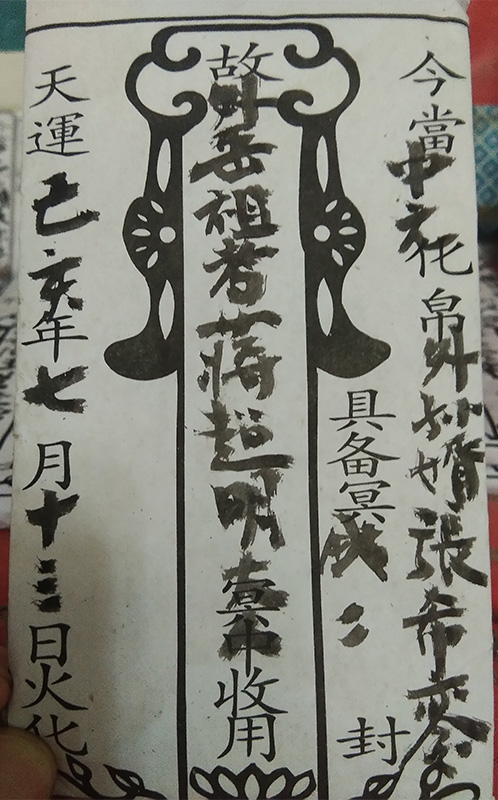 今當中元化帛外孙婿張希
具备冥 二 封
故外岳祖考蔣超明臺中收用
天運己亥年七月十三日火化